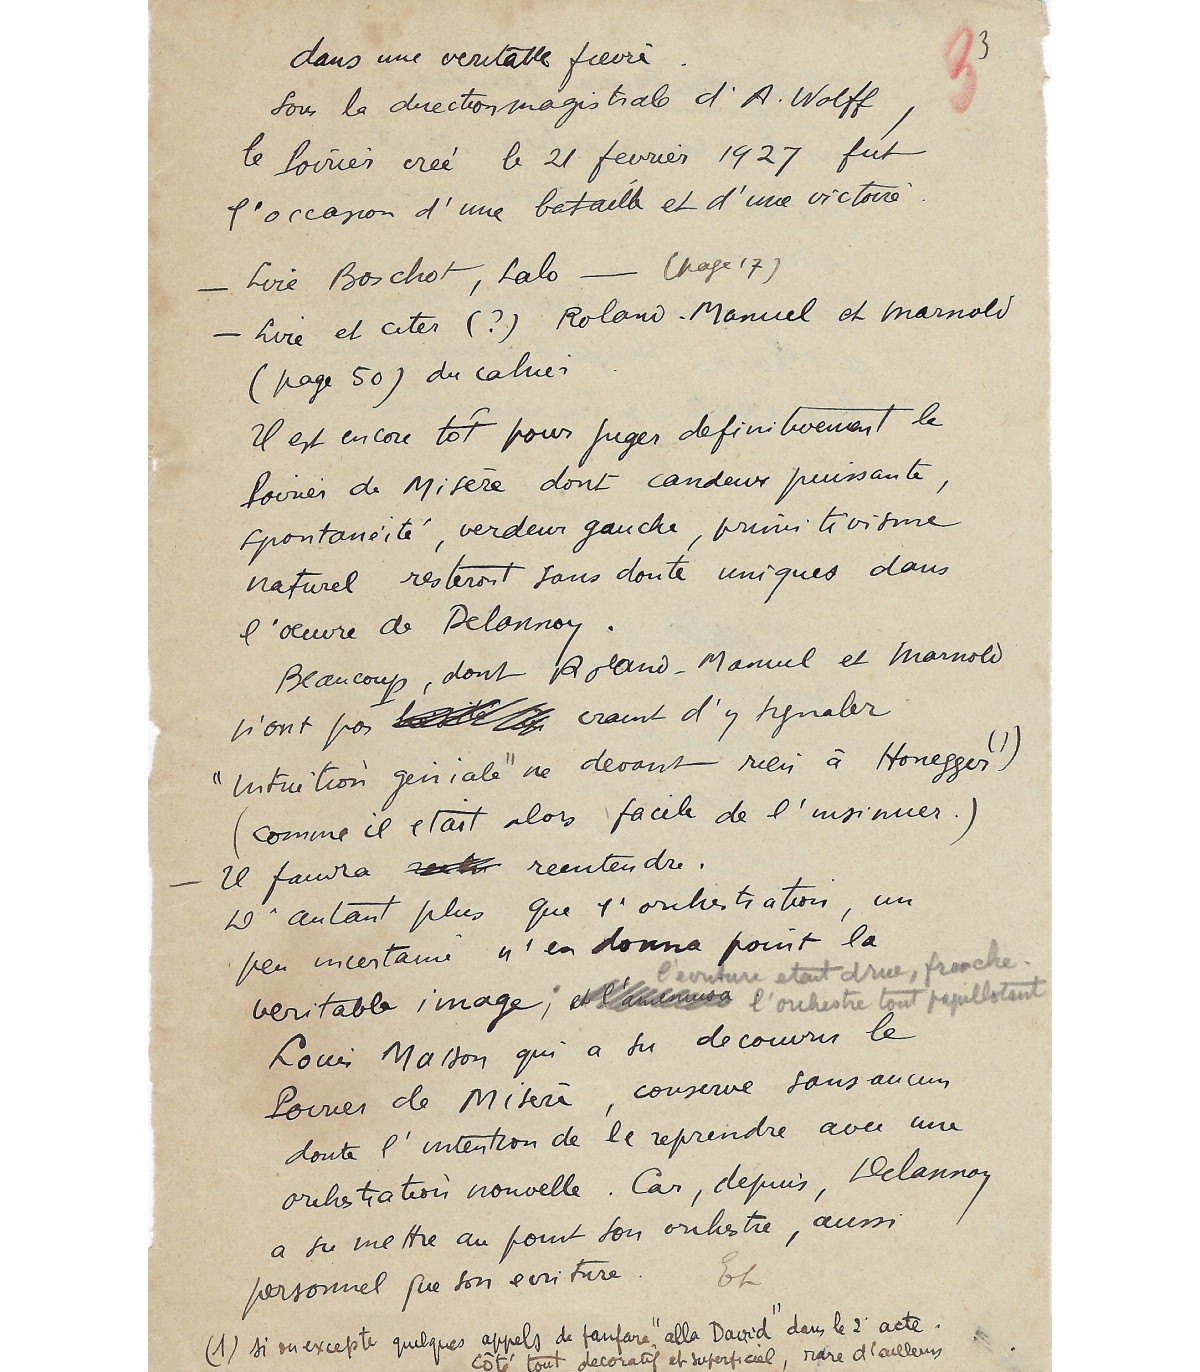 3 3
dans une veritable fièvre.
Sous la direction magistrale d'A. Wolff,
le Poirier créé le 21 fevrier 1927 fut
l'occasion d'une bataille et d'une victoire.
— Lire Boschot, Lalo — (page 17)
— Lire et citer (?) Roland-Manuel et Marnold
(page 50) du cahier
Il est encore tôt pour juger definitivement le
Poirier de Misère dont candeur puissante,
spontanéité, verdeur gauche, primitivisme
naturel resteront sans doute uniques dans
l'oeuvre de Delannoy.
Beaucoup, dont Roland-Manuel et Marnold
n'ont pas craint d'y signaler
"intuition géniale" ne devant rien à Honegger (1)
(comme il etait alors facile de l'insinuer.)
— Il faudra reentendre.
D'autant plus que l'orchestration, un
peu incertaine n'en donna point la
l'ecriture etait drue, franche.
veritable image; et l'orchestre tout papillotant
Louis Masson qui a su decouvrir le
Poirier de Misère, conserve sans aucun
doute l'intention de le reprendre avec une
orchestration nouvelle. Car, depuis, Delannoy
a su mettre au point son orchestre, aussi
personnel que son ecriture. Et
(1) si on excepte quelques appels de fanfare "alla David" dans le 2e acte.
côté tout decoratif et superficiel, rare d'ailleurs